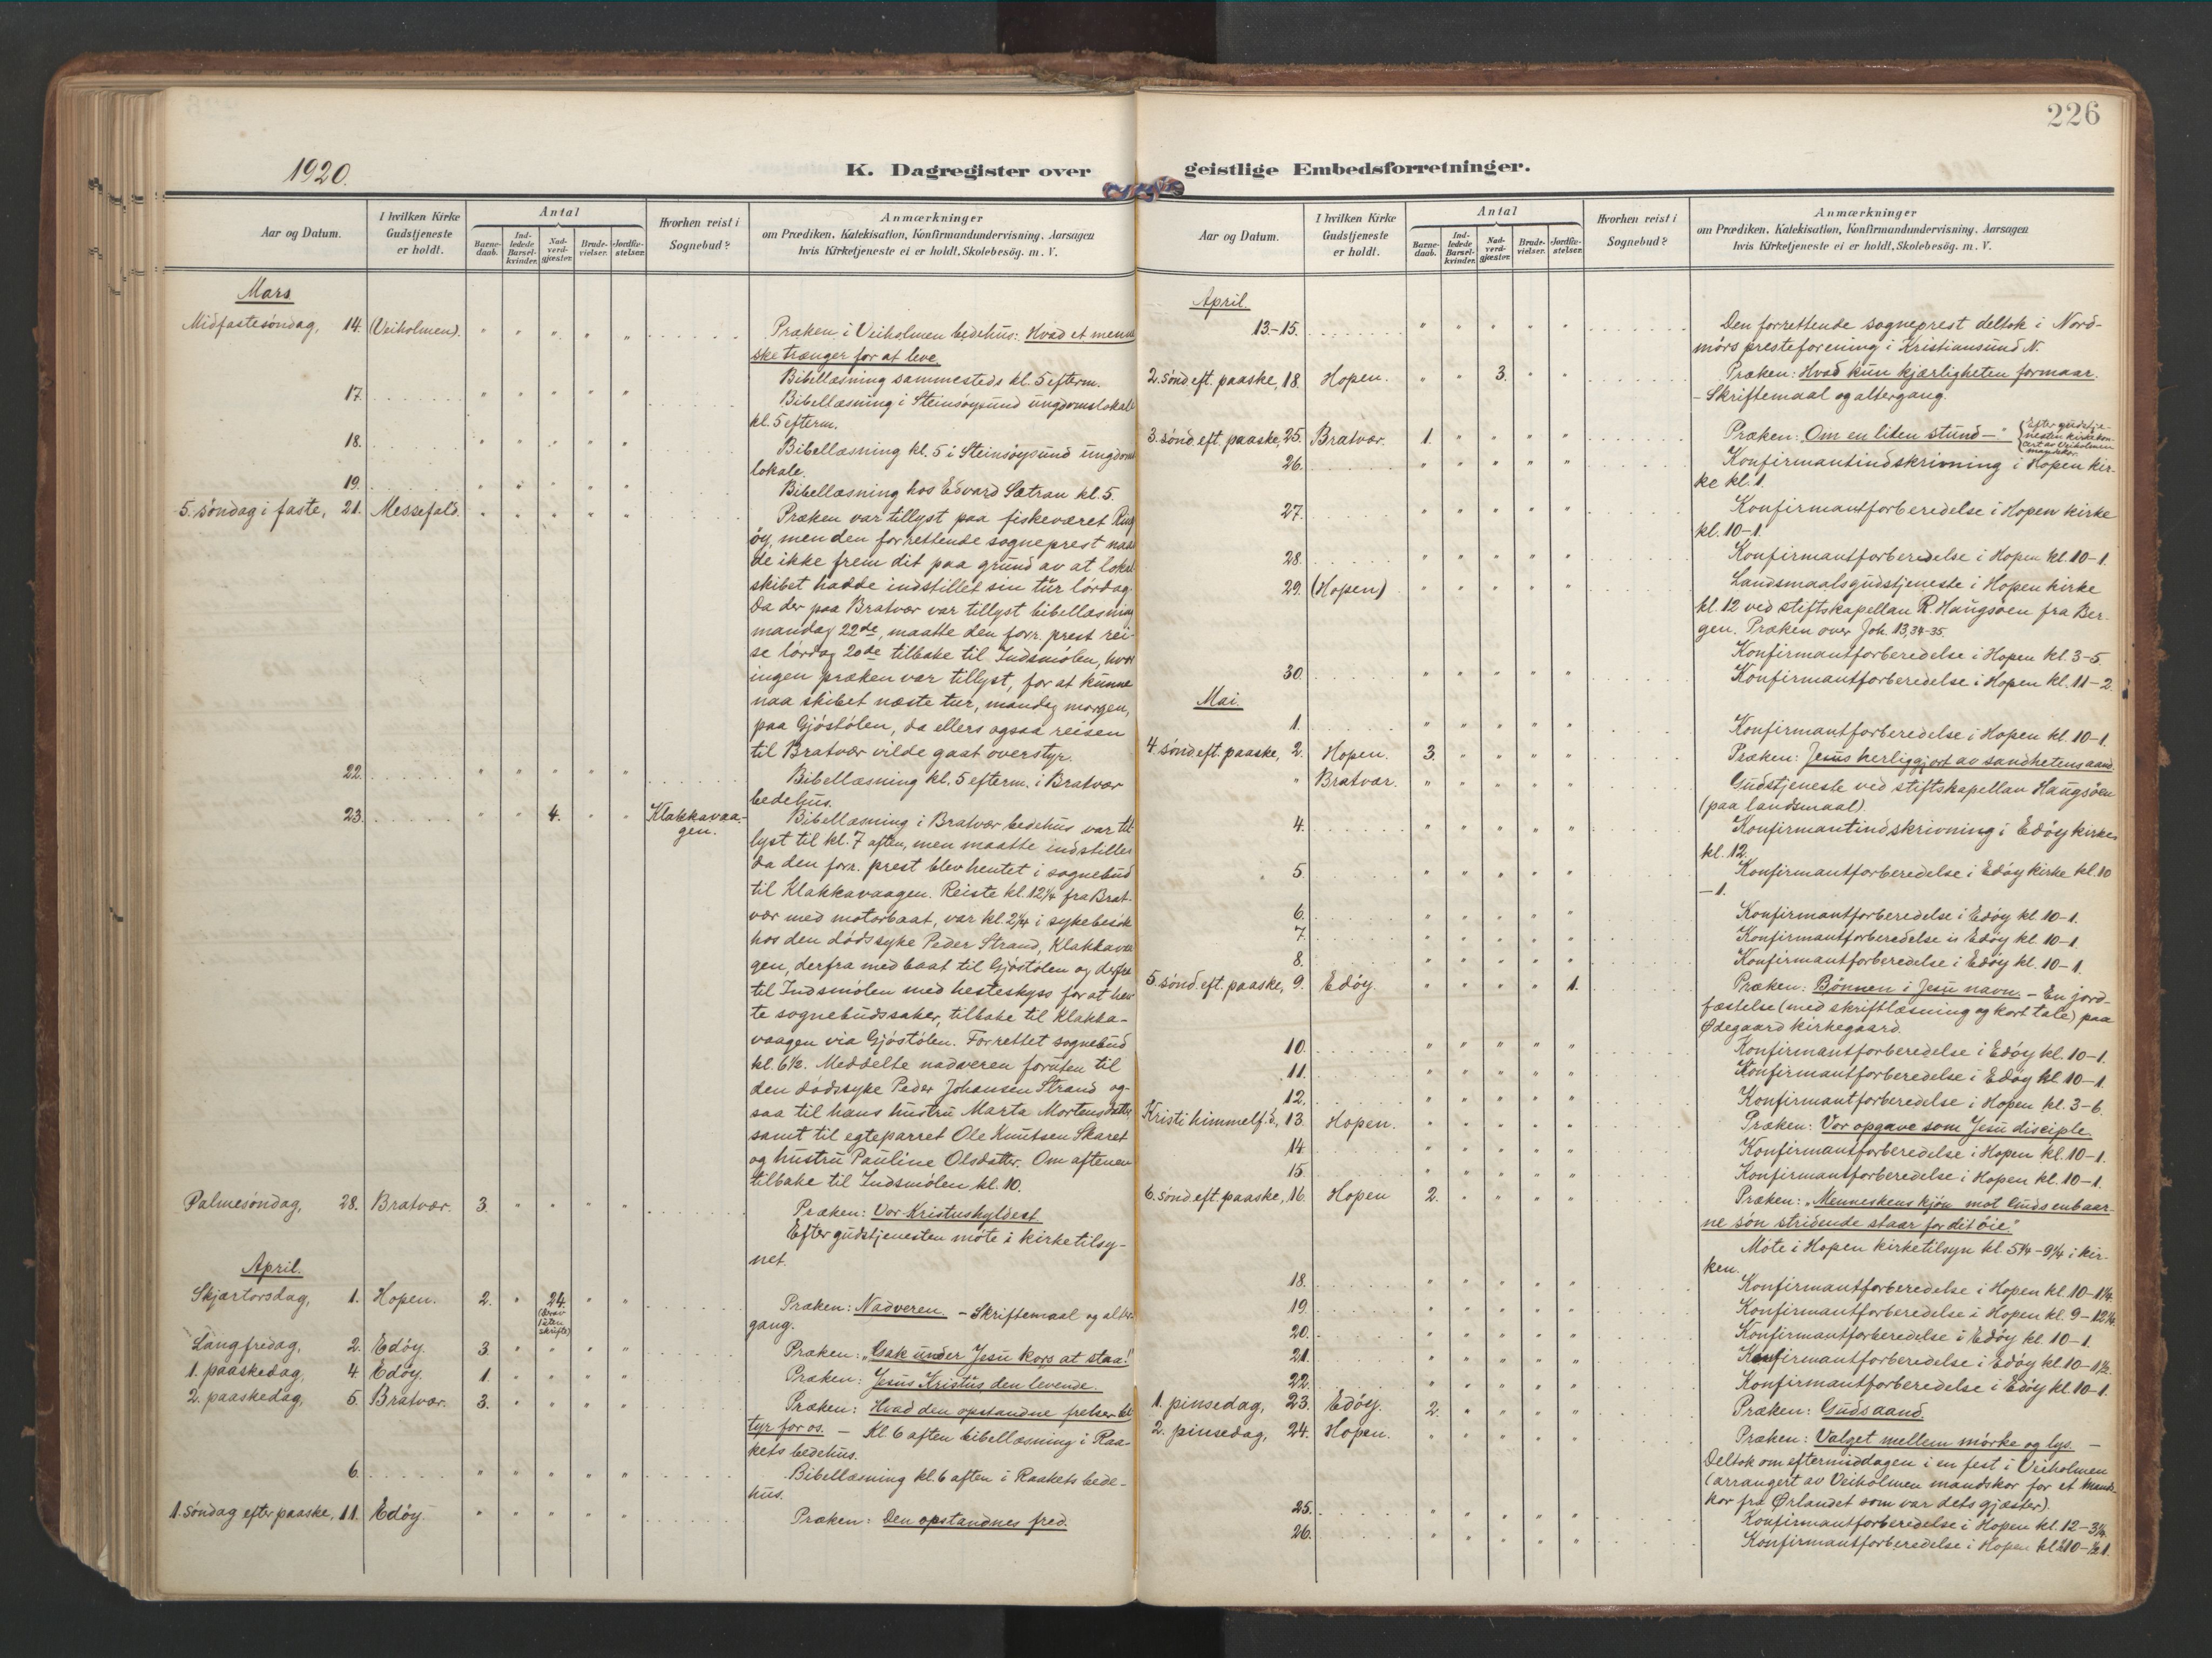 226
1920.
K. Dagregister over geistlige Embedsforretninger.
Aar og Datum.
I hvilken Kirke Gudstjeneste er holdt.
Antal
Barne-daab.
Ind-ledede Barsel-kvinder.
Nad-verd-gjæster.
Brude-vielser.
Jordfæ-stelser.
Hvorhen reist i Sognebud?
Anmærkninger
om Prædiken, Katekisation, Konfirmandundervisning, Aarsagen
hvis Kirketjeneste ei er holdt, Skolebesög. m. V.
Mars
Midfastesöndag, 14. (Veiholmen). " " " " " Præken i Veiholmen bedehus: Hvad et menne
ske trænger for at leve.
Bibellæsning sammesteds kl. 5 efterm.
17. " " " " " Bibellæsning i Steinsöysund ungdomslokale
kl. 5 efterm.
18. " " " " " Bibellæsning kl. 5 i Steinsöysund ungdoms
lokale.
19. " " " " " Bibellæsning hos Edvard Sætran kl. 5.
5. söndag i faste, 21. Messefald. " " " " " Præken var tillyst paa fiskeværet Ring
öy, men den forrettende sogneprest naad
de ikke frem dit paa grund av at lokal
skibet hadde indstillet sin tur lördag.
Da der paa Bratvær var tillyst bibellæsning
mandag 22de, maatte den forr. prest rei-
se lördag 20de tilbake til Indsmölen, hvor
ingen præken var tillyst, for at kunne
naa skibet næste tur, mandag morgen,
paa Gjöstölen, da ellers ogsaa reisen
til Bratvær vilde gaat overstyr.
22. " " " " " Bibellæsning kl. 5 efterm. i Bratvær
bedehus.
23. " " 4. " " Klakkavaa-gen. Bibellæsning i Bratvær bedehus var til
lyst til kl. 7 aften, men maatte indstilles
da den forr. prest blev hentet i sognebud
til Klakkavaagen. Reiste kl. 12 1/4 fra Brat-
vær med motorbaat, var kl. 2 1/4 i sykebesök
hos den dödssyke Peder Strand, Klakkavaa
gen, derfra med baat til Gjöstölen og derfra
til Indsmölen med hesteskyss for at hen
te sognebudssaker, tilbake til Klakka-
vaagen via Gjöstölen. Forrettet sognebud
kl. 6 1/2. Meddelte nadveren foruten til
den dödssyke Peder Johansen Strand og-
saa til hans hustru Marta Mortensdatter
samt til egteparret Ole Knutsen Skaret
og hustru Pauline Olsdatter. Om aftenen
tilbake til Indsmölen kl. 10.
Palmesöndag, 28. Bratvær. 3. " " " " Præken: Vor Kristushyldest.
Efter gudstjenesten möte i kirketilsy-
net.
April.
Skjærtorsdag, 1. Hopen. 2. " 24. " " Præken: Nadveren. – Skriftemaal og alter
gang.
Langfredag, 2. Edöy. 3. " " " " Præken: "Gak under Jesu kors at staa!"
1. paaskedag, 4 Edöy. 1. " " " " Præken: Jesus Kristus den levende.
2. paaskedag, 5. Bratvær. 3. " " " " Præken: Hvad den opstandne frelser be
tyr for os. – Kl. 6 aften bibellæsning i Raa-
kets bedehus.
6. " " " " " Bibellæsning kl. 6 aften i Raakets bede-
hus.
1. Söndag efter paaske, 11. Edöy. " " " " " Præken: Den opstandnes fred.
Aar og Datum.
I hvilken Kirke Gudstjeneste er holdt.
Antal
Barne-daab.
Ind-ledede Barsel-kvinder.
Nad-verd-gjæster.
Brude-vielser.
Jordfæ-stelser.
Hvorhen reist i Sognebud?
Anmærkninger
om Prædiken, Katekisation, Konfirmandundervisning, Aarsagen
hvis Kirketjeneste ei er holdt, Skolebesög. m. V.
April.
13–15. " " " " " Den forrettende sogneprest deltok i Nord-
mörs presteforening i Kristiansund N.
2. sönd. eft. paaske, 18. Hopen. " " 3. " " Præken: Hvad kun kjærligheten formaar.
– Skriftemaal og altergang.
3. sönd. eft. paaske, 25. Bratvær. 1. " " " " Præken: "Om en liten stund –"
Efter gudstje-
nesten kirkekon-
cert av Veiholmen
mandskor.
26. " " " " " Konfirmantindskrivning i Hopen kir-
ke kl. 1.
27. " " " " " Konfirmantforberedelse i Hopen kirke
kl. 10–1.
28. " " " " " Konfirmantforberedelse i Hopen kl. 10–1.
29. (Hopen) " " " " " Landsmaalsgudstjeneste i Hopen kirke
kl. 12 ved stiftskapellan R. Haugsöen fra Ber-
gen. Præken over Joh. 13, 34-35.
Konfirmantforberedelse i Hopen kl. 3–5.
30. " " " " " Konfirmantforberedelse i Hopen kl. 11–2.
Mai.
1. " " " " " Konfirmantforberedelse i Hopen kl. 10–1.
4. sönd. eft. paaske, 2. Hopen. 3. " " " " Præken: Jesus herliggjort av sandhetens aand.
" Bratvær. " " " " " Gudstjeneste ved stiftskapellan Haugsöen
(paa landsmaal).
4. " " " " " Konfirmantindskrivning i Edöy kirke
kl. 12.
5. " " " " " Konfirmantforberedelse i Edöy kirke kl. 10
–1.
6. " " " " " Konfirmantforberedelse i Edöy kl. 10–1.
7. " " " " " Konfirmantforberedelse i Edöy kl. 10–1.
8. " " " " " Konfirmantforberedelse i Edöy kl. 10–1.
5. sönd. eft. paaske, 9. Edöy. " " " " 1. Præken: Bönnen i Jesu navn. – En jord-
fæstelse (med skriftlæsning og kort tale) paa
Ödegaard kirkegaard.
10. " " " " " Konfirmantforberedelse i Edöy kl. 10–1.
11. " " " " " Konfirmantforberedelse i Edöy kl. 10–1.
12. " " " " " Konfirmantforberedelse i Hopen kl. 3–6.
Kristi himmelf. d., 13. Hopen. " " " " " Præken: Vor opgave som Jesu disciple.
14. " " " " " Konfirmantforberedelse i Hopen kl. 10–1.
15. " " " " " Konfirmantforberedelse i Hopen kl. 10–1.
6. sönd. eft. paaske, 16. Hopen 2. " " " " Præken: "Menneskens kjön mot Guds enbaar-
ne sön stridende staar for dit öie."
Möte i Hopen kirketilsyn kl. 5 1/4–9 1/4 i kir-
ken.
18. " " " " " Konfirmantforberedelse i Hopen kl. 10–1 1/4.
19. " " " " " Konfirmantforberedelse i Hopen kl. 9–12 1/4.
20. " " " " " Konfirmantforberedelse i Edöy kl. 10–1.
21. " " " " " Konfirmantforberedelse i Edöy kl. 10–1 1/2.
22. " " " " " Konfirmantforberedelse i Edöy kl. 10–1.
1. pinsedag, 23. Edöy. 2. " " " " Præken: Guds aand.
2. pinsedag, 24. Hopen. " " " " " Præken: Valget mellem mörke og lys. –
Deltok om eftermiddagen i en fest i Veiholmen
(arrangert av Veiholmen mandskor for et mands-
kor fra Ørlandet som var dets gjæster).
25. " " " " " Konfirmantforberedelse i Hopen kl. 12–3 1/4.
26. " " " " " Konfirmantforberedelse i Hopen